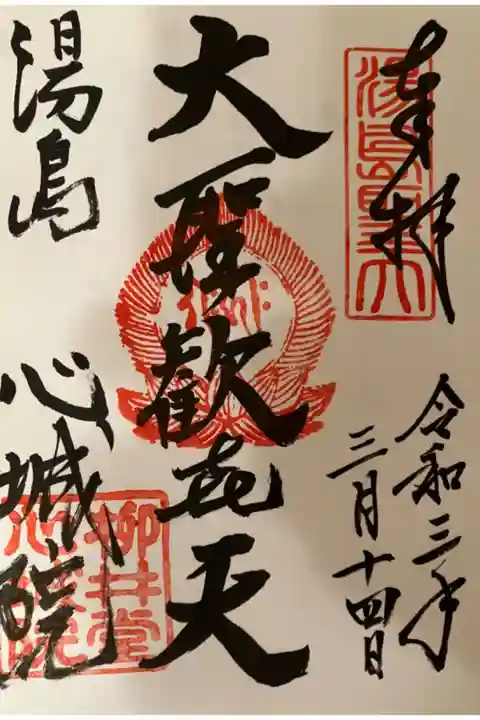 奉拝
令和三年
三月十四日
大聖歓㐂天
湯島
心城院
柳井堂
心城院